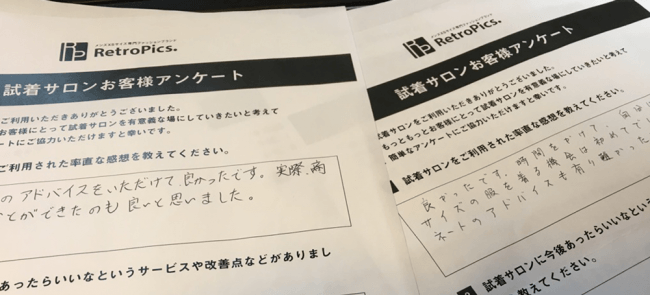 RetroPics.
試着サロンお客様アンケート
ご利用いただきありがとうございました。
お客様にとって試着サロンを有意義な場にしていきたいと考えて
ートにご協力いただけますと幸いです。
ご利用された率直な感想を教えてください。
のアドバイスをいただけて良かったです。実際、商
ことができたのも良いと思いました。
あったらいいなというサービスや改善点などがありまし
RetroPics.
試着サロンお客様アンケート
試着サロンをご利用いただきありがとうございました。
もっともっとお客様にとって試着サロンを有意義な場にしていきたいと考えて
簡単なアンケートにご協力いただけますと幸いです。
試着サロンをご利用された率直な感想を教えてください。
良かったです。時間をかけて、自分
サイズの服を着る機会は初めてで
ネートのアドバイスも有り難かった
試着サロンに今後あったらいいなという
教えてください。